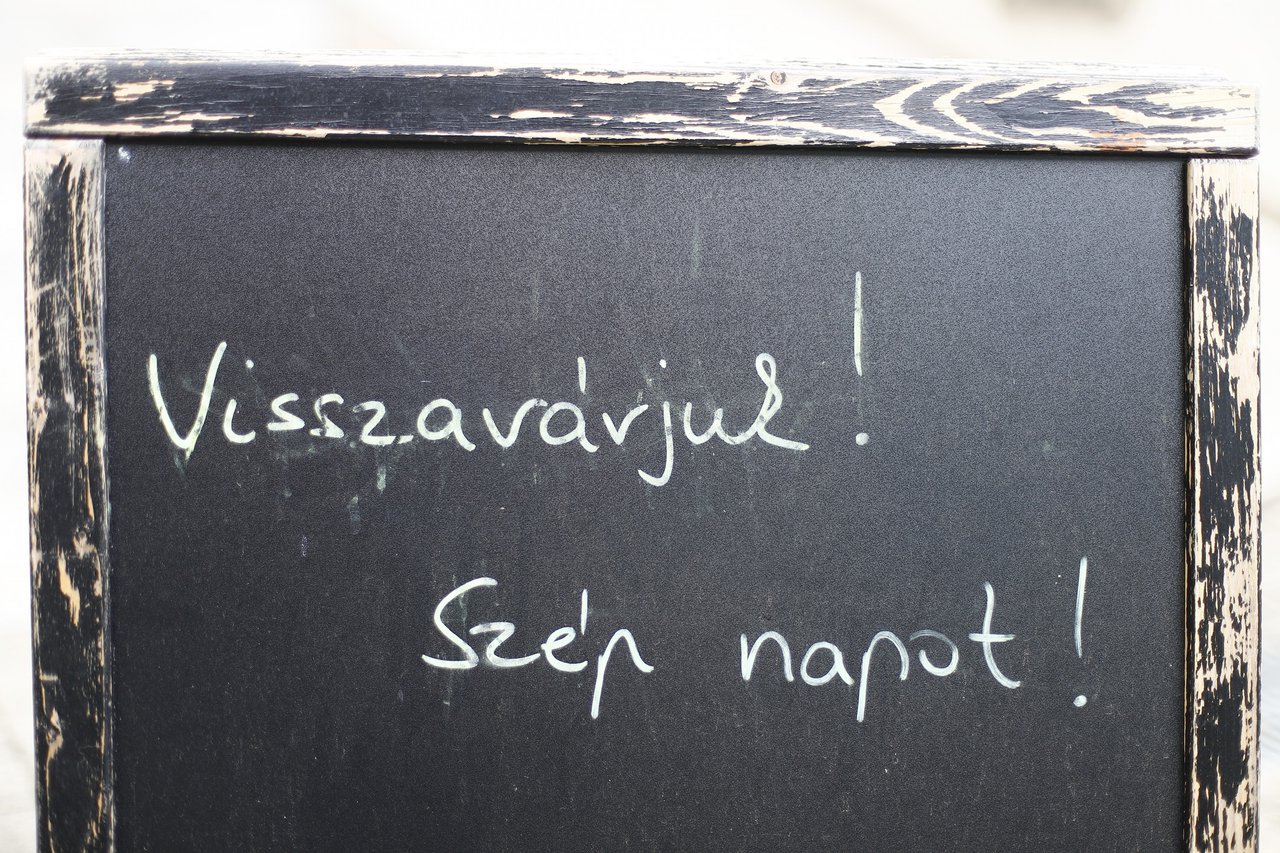 Visszavárjuk!
Szép napot!